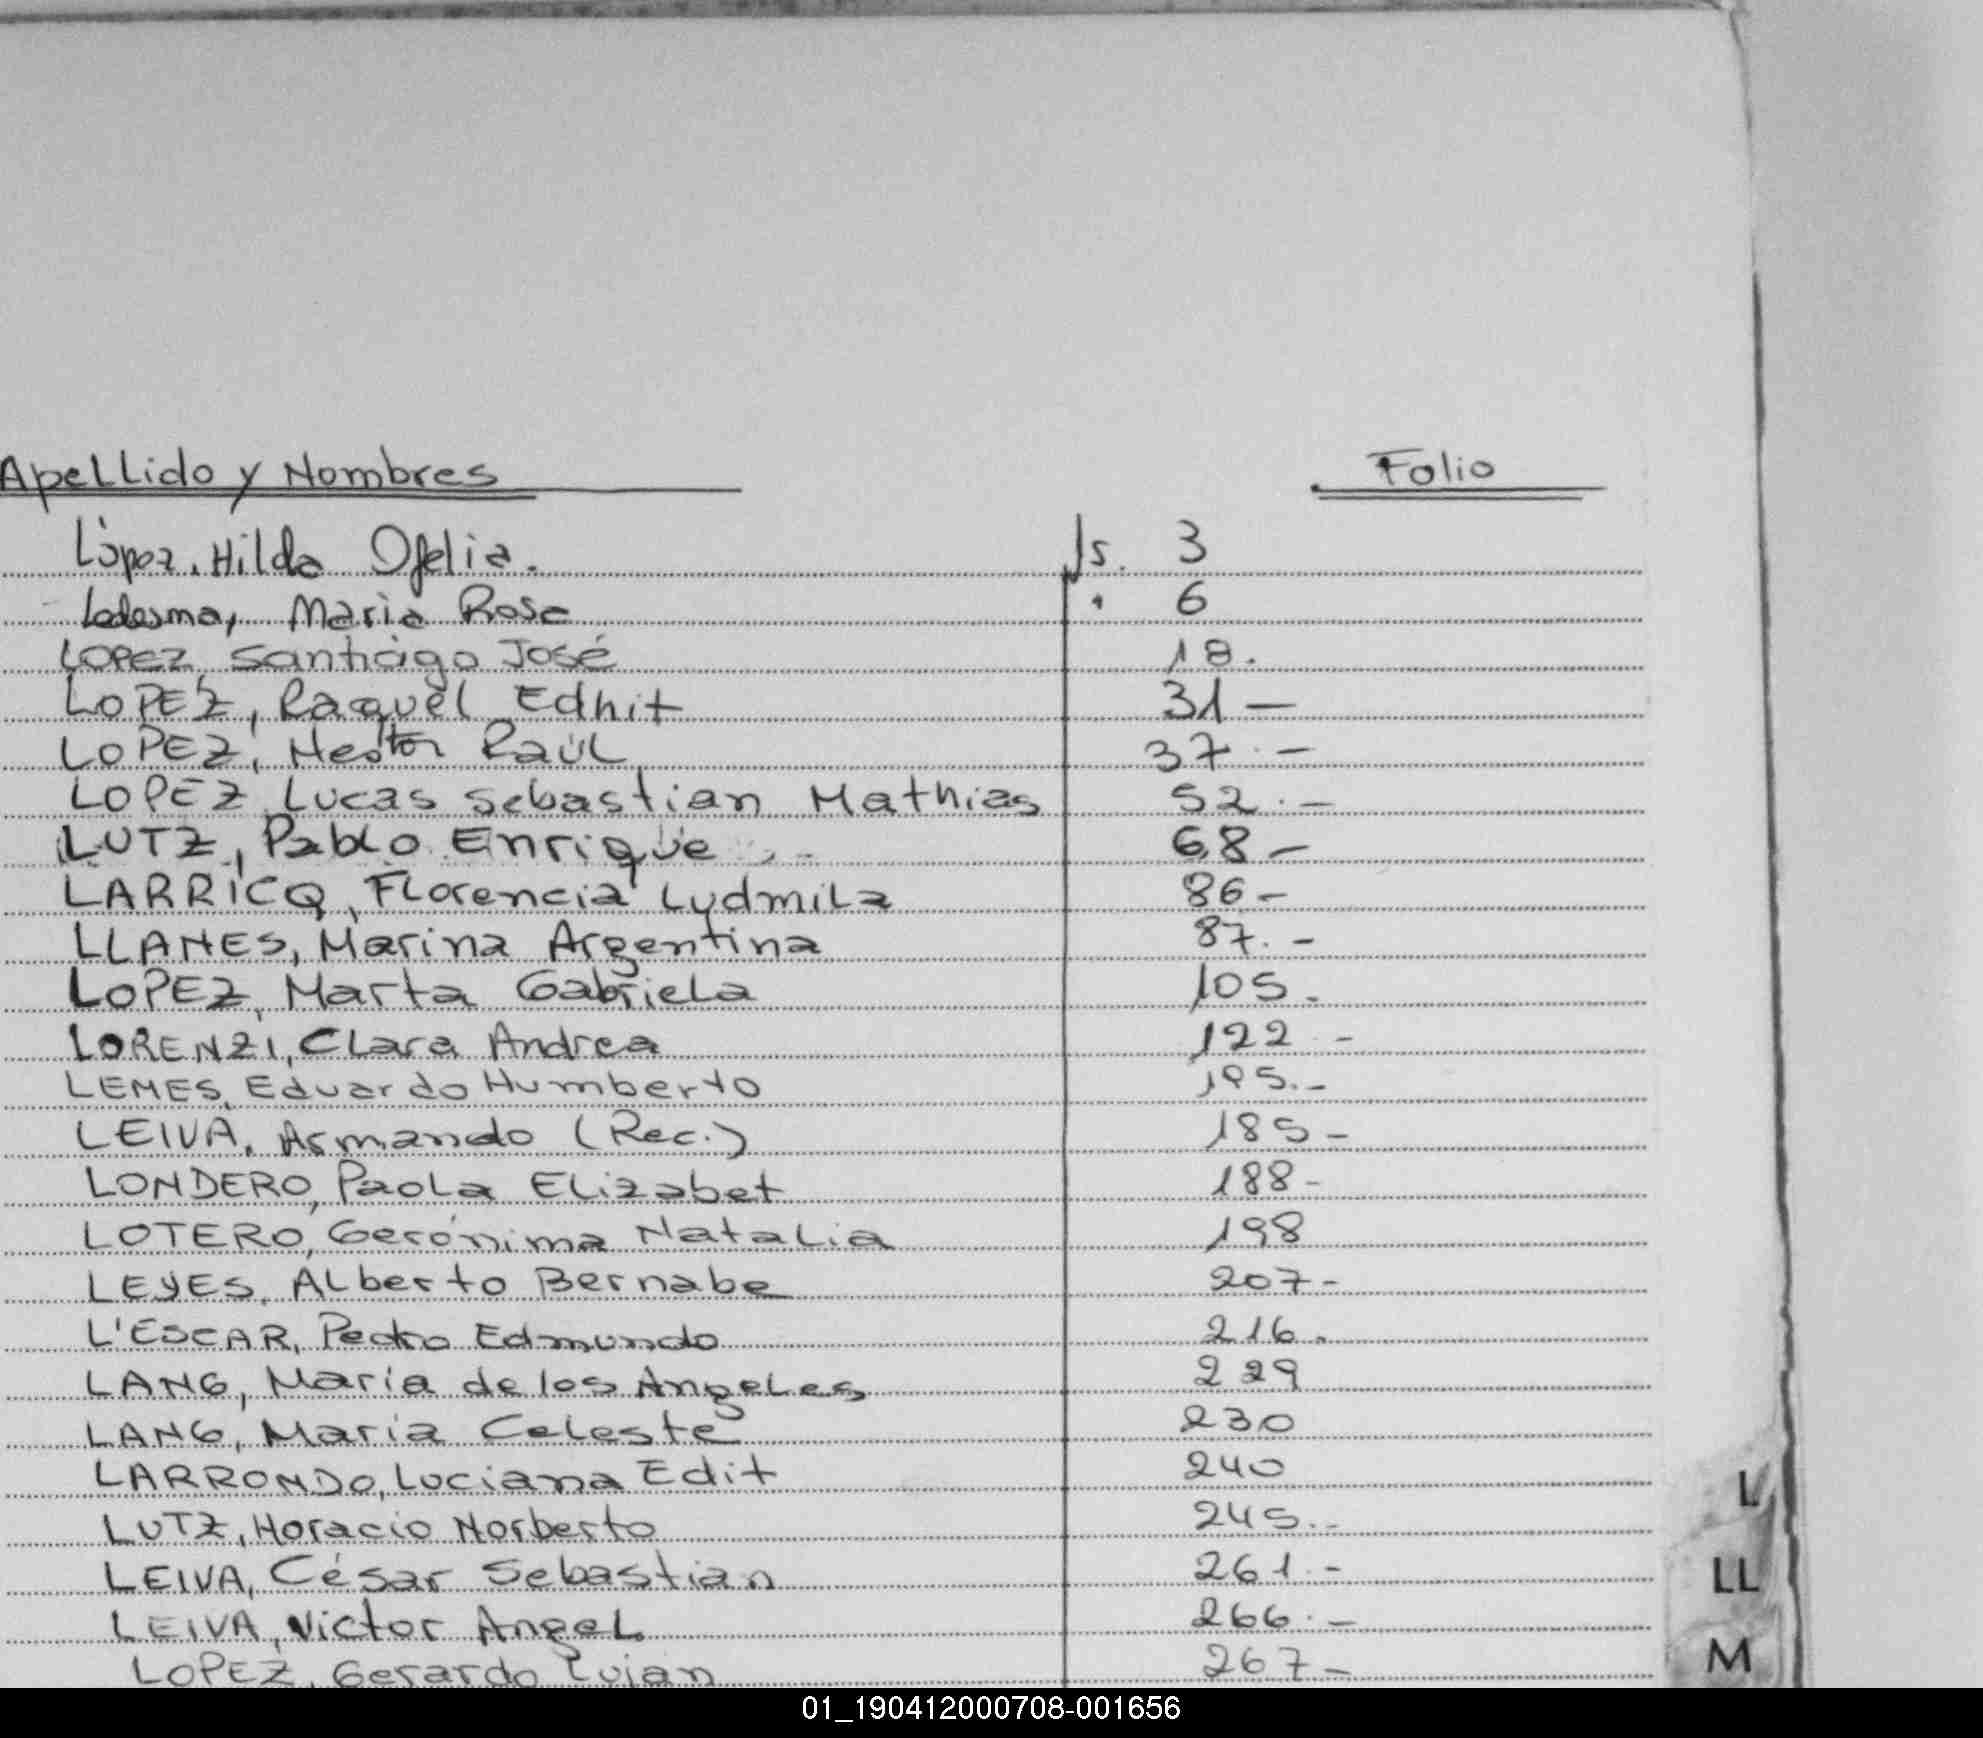 Apellido y Nombres Folio
López, Hilda Ofelia. fs. 3
Ledesma, Maria Rosa " 6
LOPEZ, Santiago José 18.
LOPEZ, Raquel Edhit 31 -
LOPEZ, Nestor Raúl 37.-
LOPEZ, Lucas Sebastian Mathias 52.-
LUTZ, Pablo Enrique 68 -
LARRICQ, Florencia Ludmila 86 -
LLANES, Marina Argentina 87.-
LOPEZ, Marta Gabriela 105.
LORENZI, Clara Andrea 122.-
LEMES, Eduardo Humberto
LEIVA, Armando (Rec.) 185 -
LONDERO, Paola Elizabet 188 -
LOTERO, Gerónima Natalia 198
LEYES, Alberto Bernabe 207 -
L'ESCAR, Pedro Edmundo 216.
LANG, María de los Angeles 229
LANG, María Celeste 230
LARRONDO, Luciana Edit 240
LUTZ, Horacio Norberto 245.-
LEIVA, César Sebastian 261.-
LEIVA, Victor Angel 266.-
LOPEZ, Gerardo Lujan 267 -
L
LL
M
01_190412000708-001656